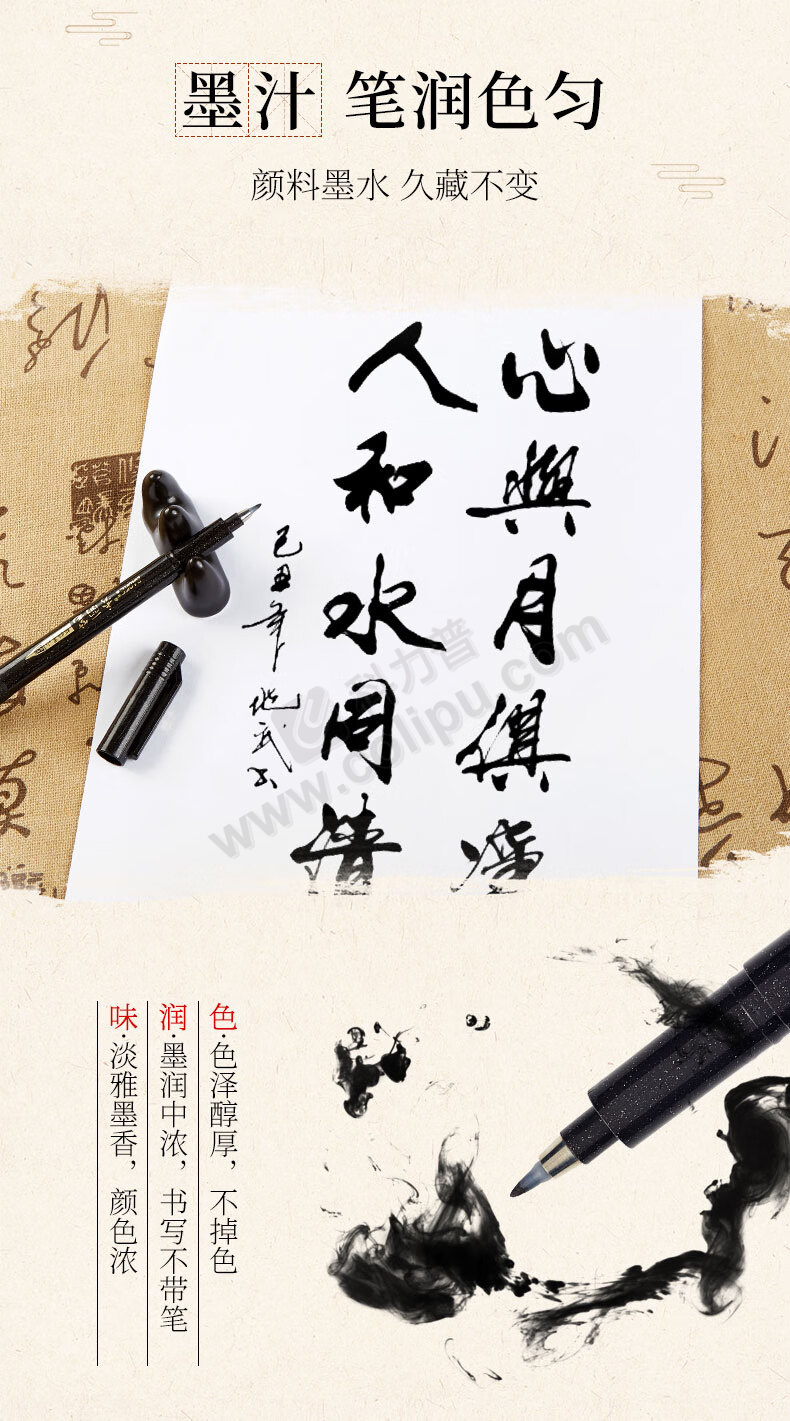 墨汁 笔润色匀
颜料墨水 久藏不变
心與月俱净
人和水同清
己丑年
科力普
www.colipu.com
色·色泽醇厚，不掉色
润·墨润中浓，书写不带笔
味·淡雅墨香，颜色浓